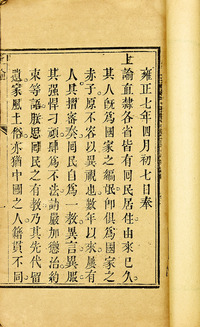 雍正七年四月初七日奉
上諭直隸各省皆有回民居住由來已久
其人既爲國家之編氓即俱爲國家之
赤子原不容以異視也數年以來屢有
人具摺密奏回民自爲一教異言異服
其強悍刁頑肆爲不法請嚴加懲治約
束等語朕思回民之有教乃其先代留
遺家風土俗亦猶中國之人籍貫不同